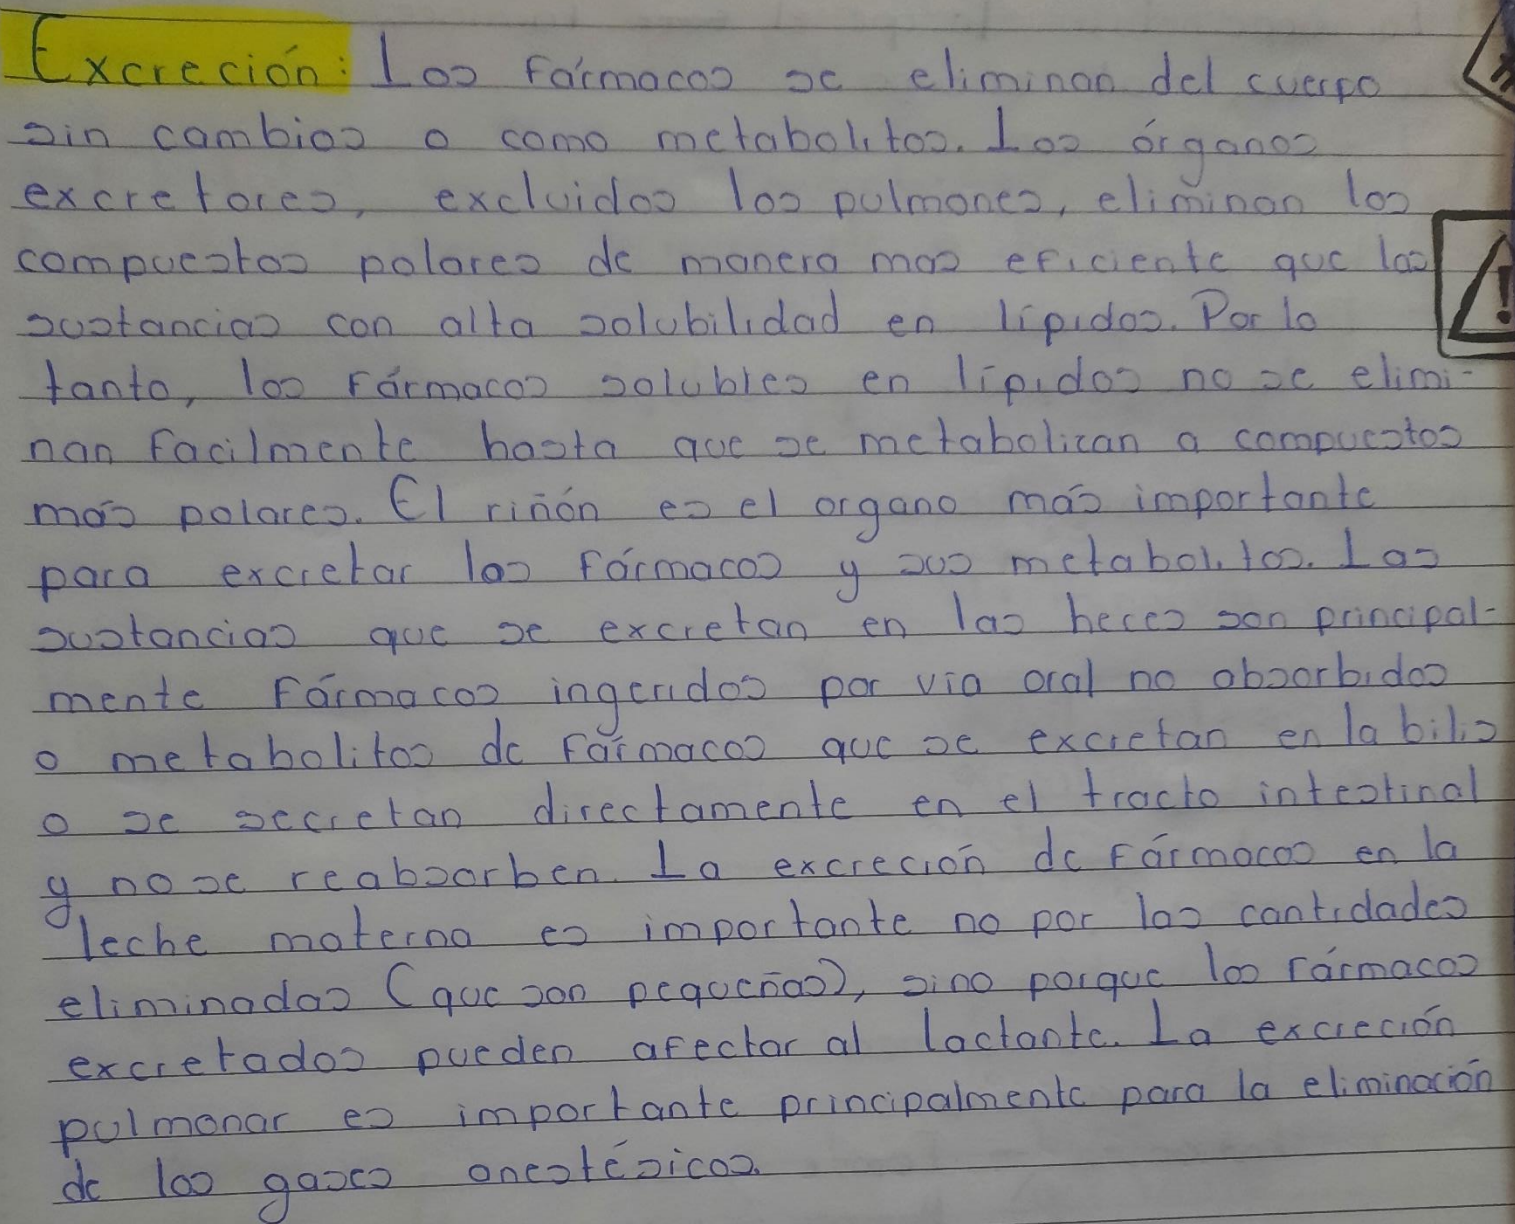 Excreción: Los Fármacos se eliminan del cuerpo
sin cambios o como metabolitos. Los órganos
excretores, excluidos los pulmones, eliminan los
compuestos polares de manera mas eficiente que las
sustancias con alta solubilidad en lípidos. Por lo
tanto, los Fármacos solubles en lípidos no se elimi-
nan Facilmente hasta que se metabolizan a compuestos
más polares. El riñón es el organo más importante
para excretar los Fármacos y sus metabolitos. Las
sustancias que se excretan en las heces son principal-
mente Fármacos ingeridos por via oral no absorbidos
o metabolitos de Fármacos que se excretan en la bilis
o se secretan directamente en el tracto intestinal
y no se reabsorben. La excreción de Fármacos en la
leche materna es importante no por las cantidades
eliminadas (que son pequeñas), sino porque los Fármacos
excretados pueden afectar al lactante. La excreción
pulmonar es importante principalmente para la eliminación
de los gases anestésicos.